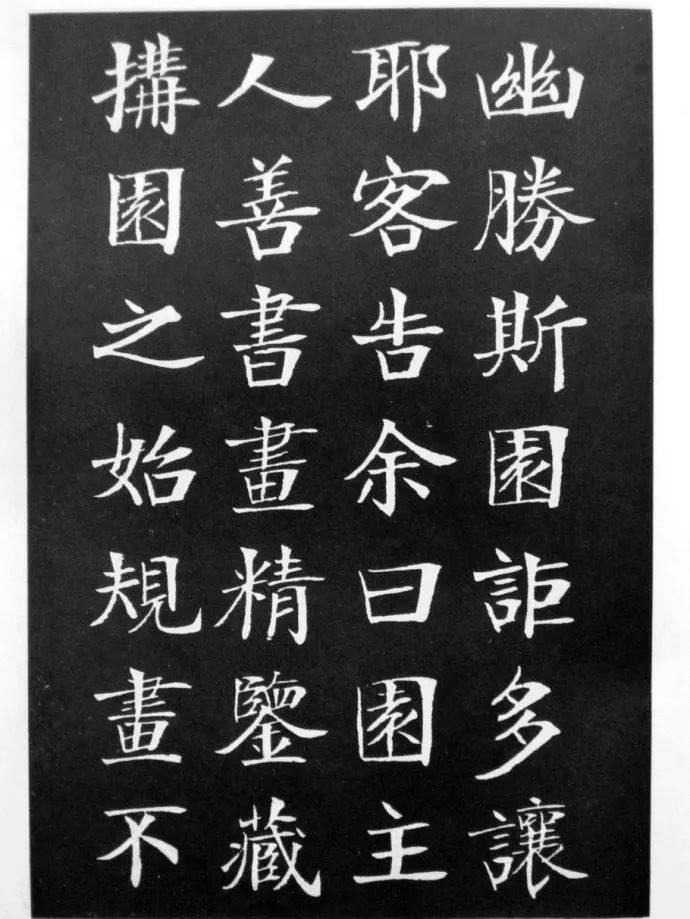 幽勝斯園詎多讓
耶客告余曰園主
人善書畫精鑒藏
搆園之始規畫不